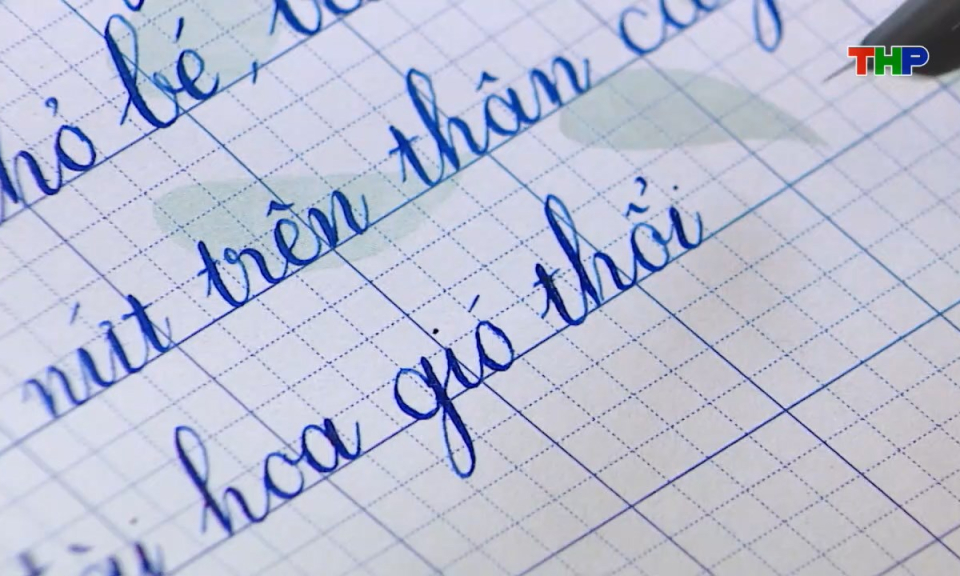 THP
nhỏ bé,
nút trên thân
hoa gió thổi